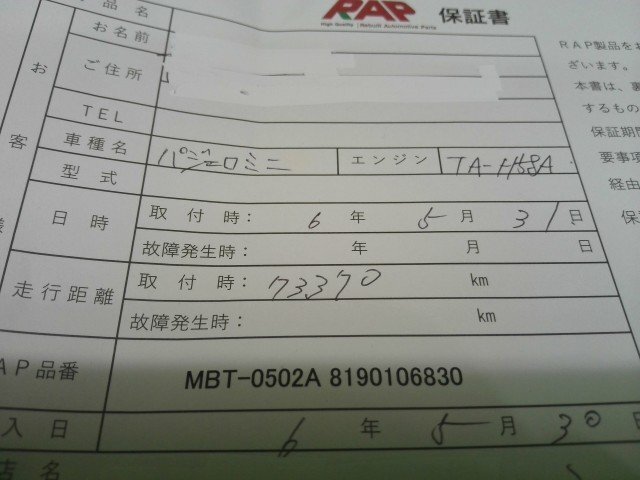 品名
RAP 保証書
High Quality Rebuilt Automotive Parts
お客様
お名前
ご住所
TEL
車種名 パジェロミニ エンジン TA-H58A
型式
日時 取付時: 6年 5月 31日
故障発生時: 年 月 日
走行距離 取付時: 73370 km
故障発生時: km
AP品番 MBT-0502A 8190106830
入日 6年 5月 30
店名
RAP製品をお
ざいます。
本書は、裏
するもの
保証期間
要事項
経由
保